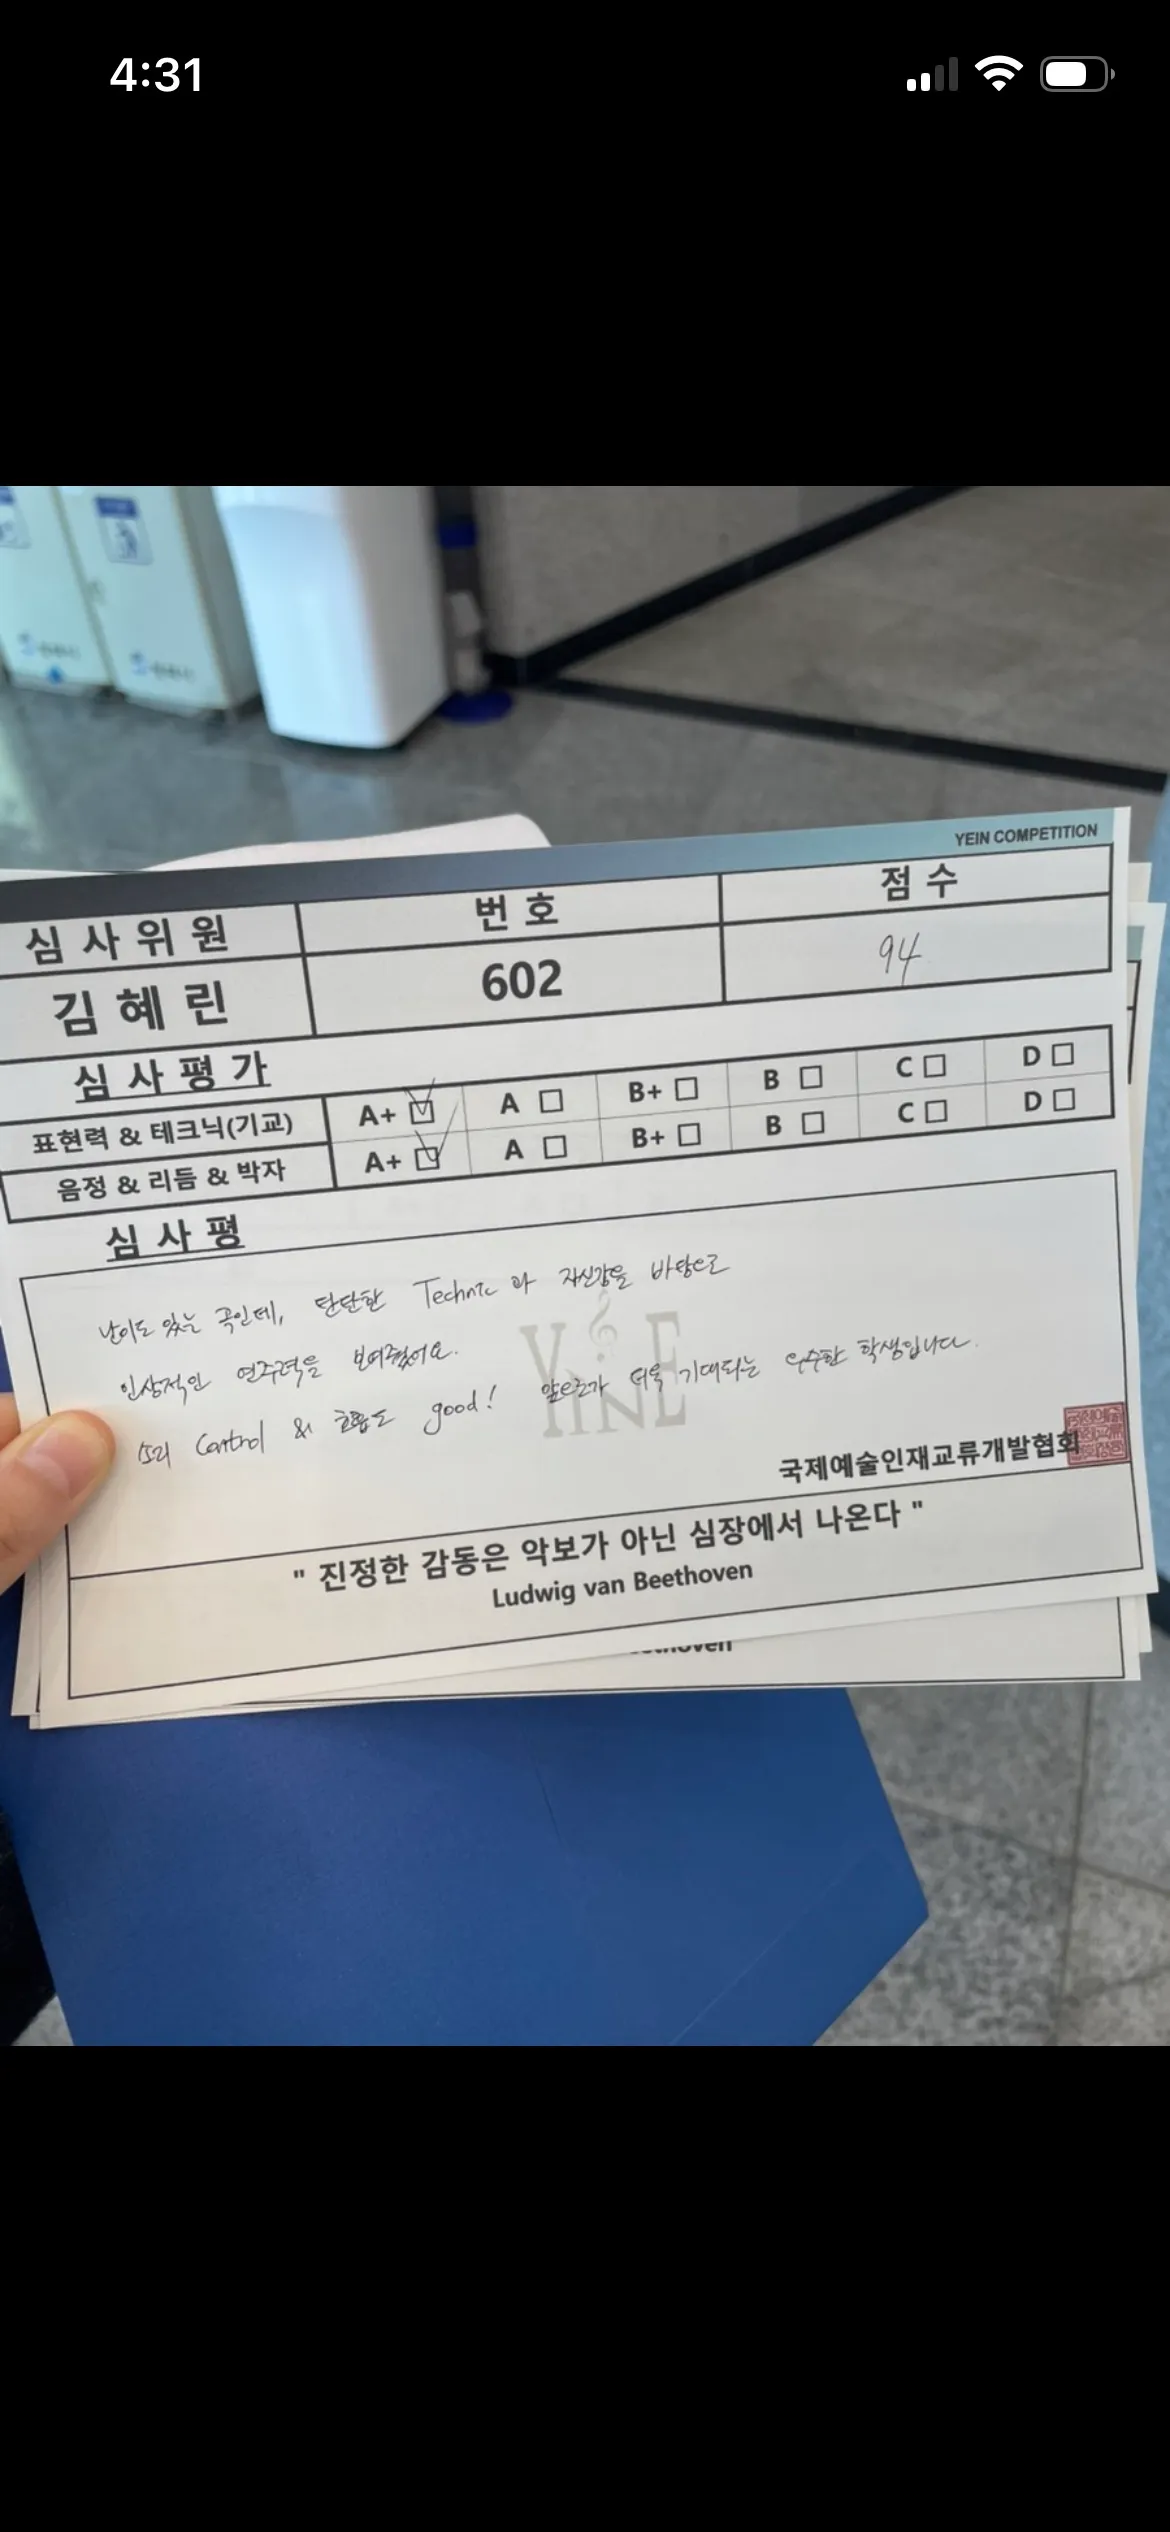 4:31
YEIN COMPETITION
심사위원 번호 점수
김혜린 602 94
심사평가
표현력 & 테크닉(기교) A+ A B+ B C D
음정 & 리듬 & 박자 A+ A B+ B C D
심사평
난이도 있는 곡인데, 탄탄한 Technic과 자신감을 바탕으로
인상적인 연주력을 보여줬어요.
소리 Control & 호흡도 good! 앞으로가 더욱 기대되는 우수한 학생입니다.
국제예술인재교류개발협회
" 진정한 감동은 악보가 아닌 심장에서 나온다 "
Ludwig van Beethoven